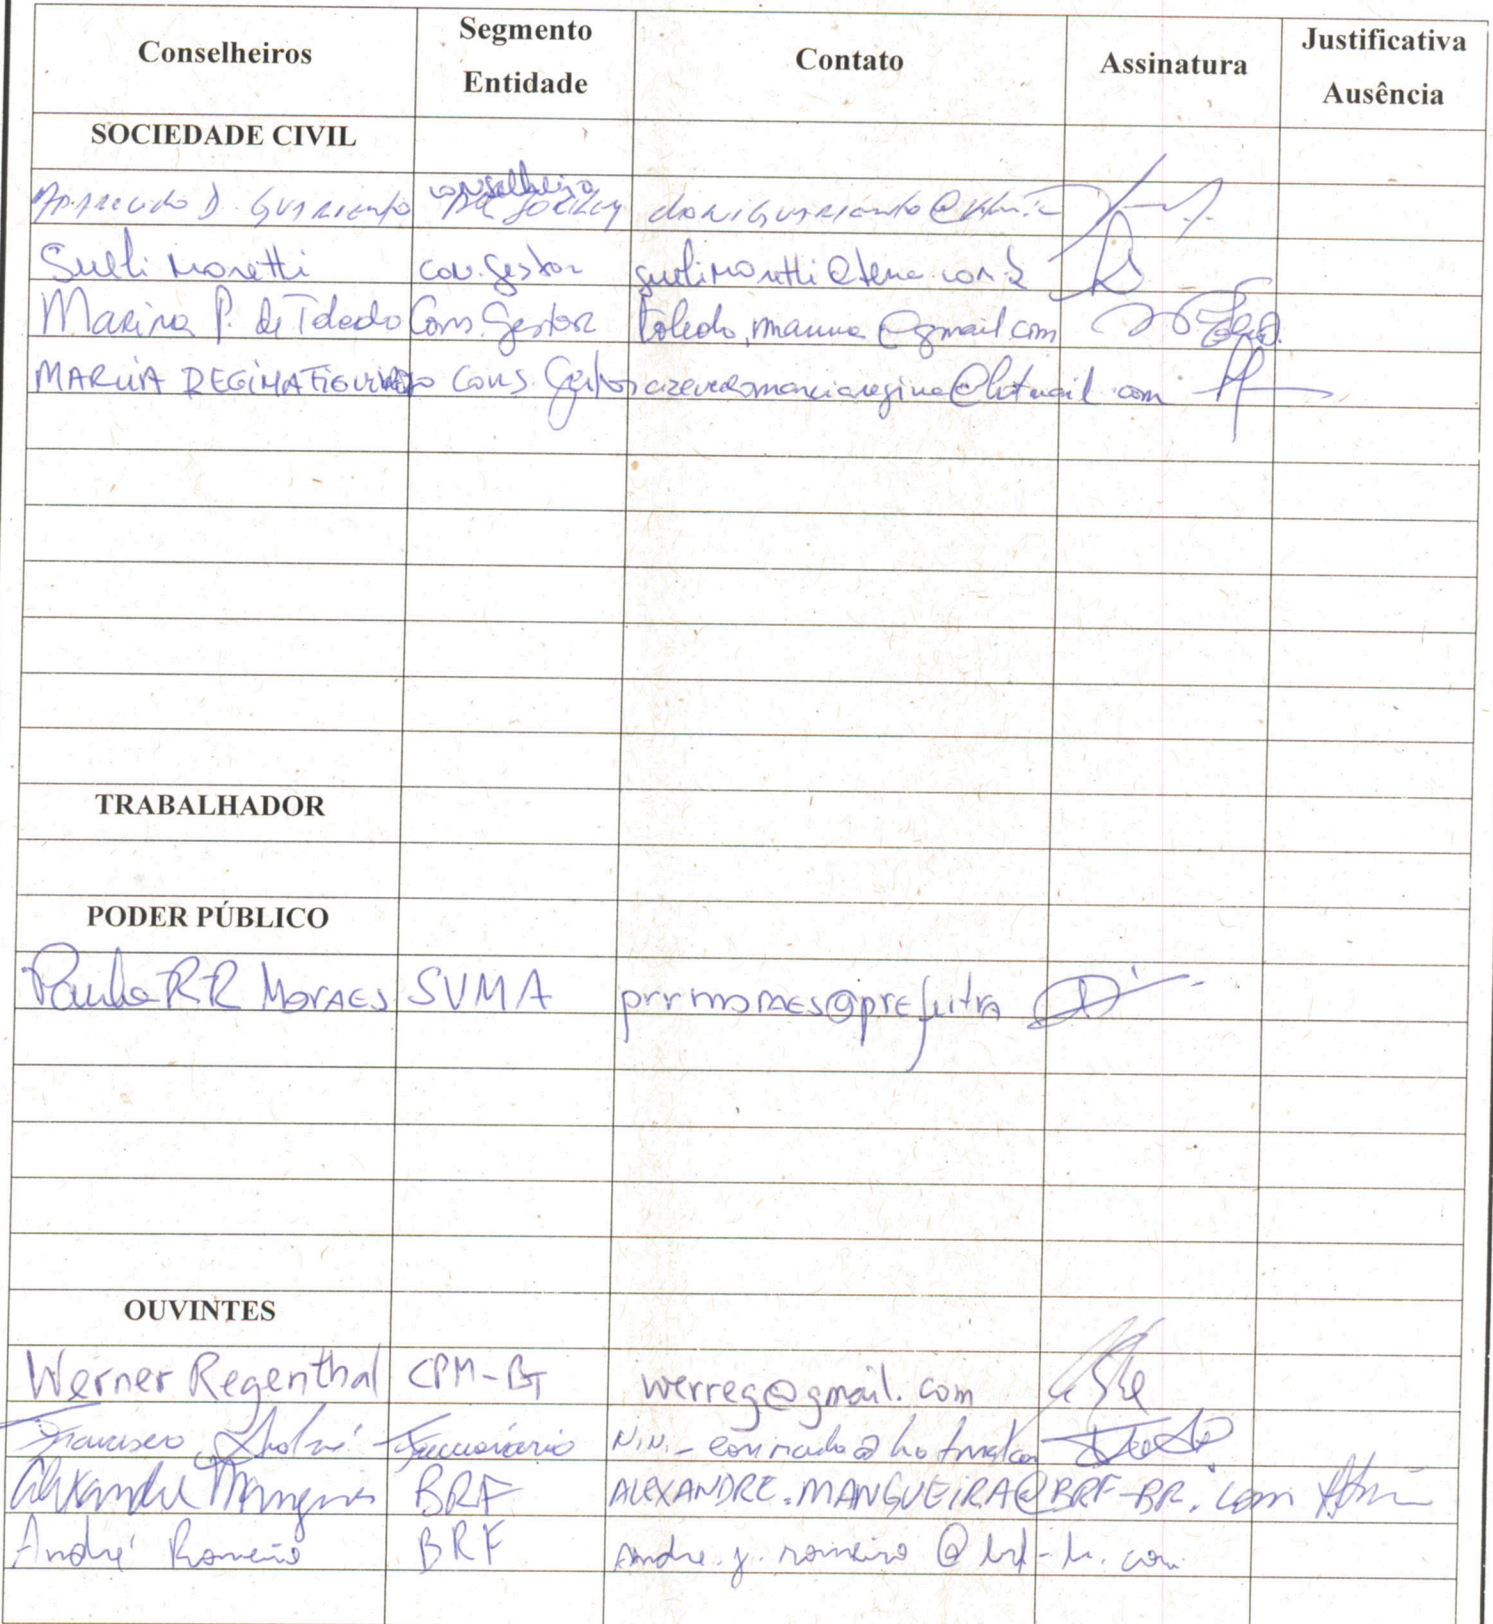 Conselheiros Segmento Entidade Contato Assinatura Justificativa Ausência
SOCIEDADE CIVIL
D. Guariento conselheiro
Sueli Moretti con. Gestor
Marina P. de Toledo Cons. Gestor toledo.marina@gmail.com
MARCIA REGINA Cons. Gestor azevedomarciaregina@hotmail.com
TRABALHADOR
PODER PÚBLICO
Paula RR MORAES SVMA prrmoraes@prefeitra
OUVINTES
Werner Regenthal CPM-BT werreg@gmail.com
Francisco André Funcionário
Alexandre BRF ALEXANDRE.MANGUEIRA@BRF-BR.com
André Romeiro BRF andre.j.romeiro@brf-br.com